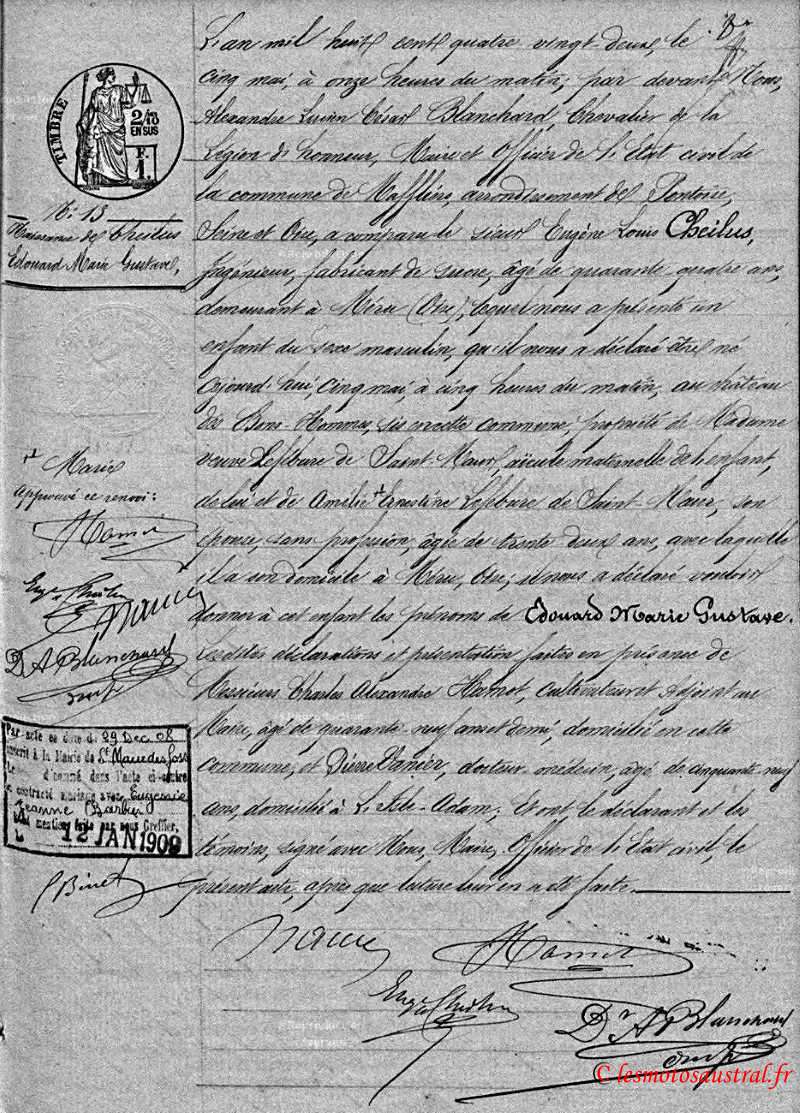 TIMBRE
2/10
EN SUS
F.
1
N: 13
Naissance de Cheilus
Edouard Marie Gustave,
L'an mil huit cent quatre vingt-deux, le
cinq mai, à onze heures du matin, par devant Nous,
Alexandre Lucien César Blanchard, Chevalier de la
Légion d'honneur, Maire et Officier de l'Etat civil de
la commune de Maffliers, arrondissement de Pontoise,
Seine et Oise, a comparu le sieur Eugène Louis Cheilus,
Ingénieur, fabricant de sucre, âgé de quarante quatre ans,
demeurant à Méru (Oise), lequel nous a présenté un
enfant du sexe masculin, qu'il nous a déclaré être né
aujourd'hui, cinq mai, à cinq heures du matin, au château
des Bons-Hommes, sis en cette commune, propriété de Madame
veuve Lefébure de Saint-Maur, aïeule maternelle de l'enfant,
de lui et de Amélie Ernestine Lefébure de Saint-Maur, son
épouse, sans profession, âgée de trente deux ans, avec laquelle
il a son domicile à Méru, Oise; il nous a déclaré vouloir
donner à cet enfant les prénoms de Edouard Marie Gustave.
Lesdites déclarations et présentation faites en présence de
Messieurs Charles Alexandre Hamot, cultivateur et Adjoint au
Maire, âgé de quarante-neuf ans et demi, domicilié en cette
commune, et Pierre Vanier, docteur-médecin, âgé de cinquante neuf
ans, domicilié à L'Isle-Adam; Et ont, le déclarant et les
témoins, signé avec Nous, Maire, Officier de l'Etat civil, le
présent acte, après que lecture leur en a été faite.
Marie
Approuvé ce renvoi:
Hamot
Eug. Cheilus
Dr A Blanchard
Par acte en date du 29 Dec. 08
inscrit à la Mairie de St Maur des fossés
Le
dans l'acte ci-contre
a contracté mariage avec Eugénie
Jeanne Barbier
mention faite par nous Greffier,
12 JAN 1909
Binet
Hamot
Eug. Cheilus
Dr A Blanchard
© lesmotosaustral.fr